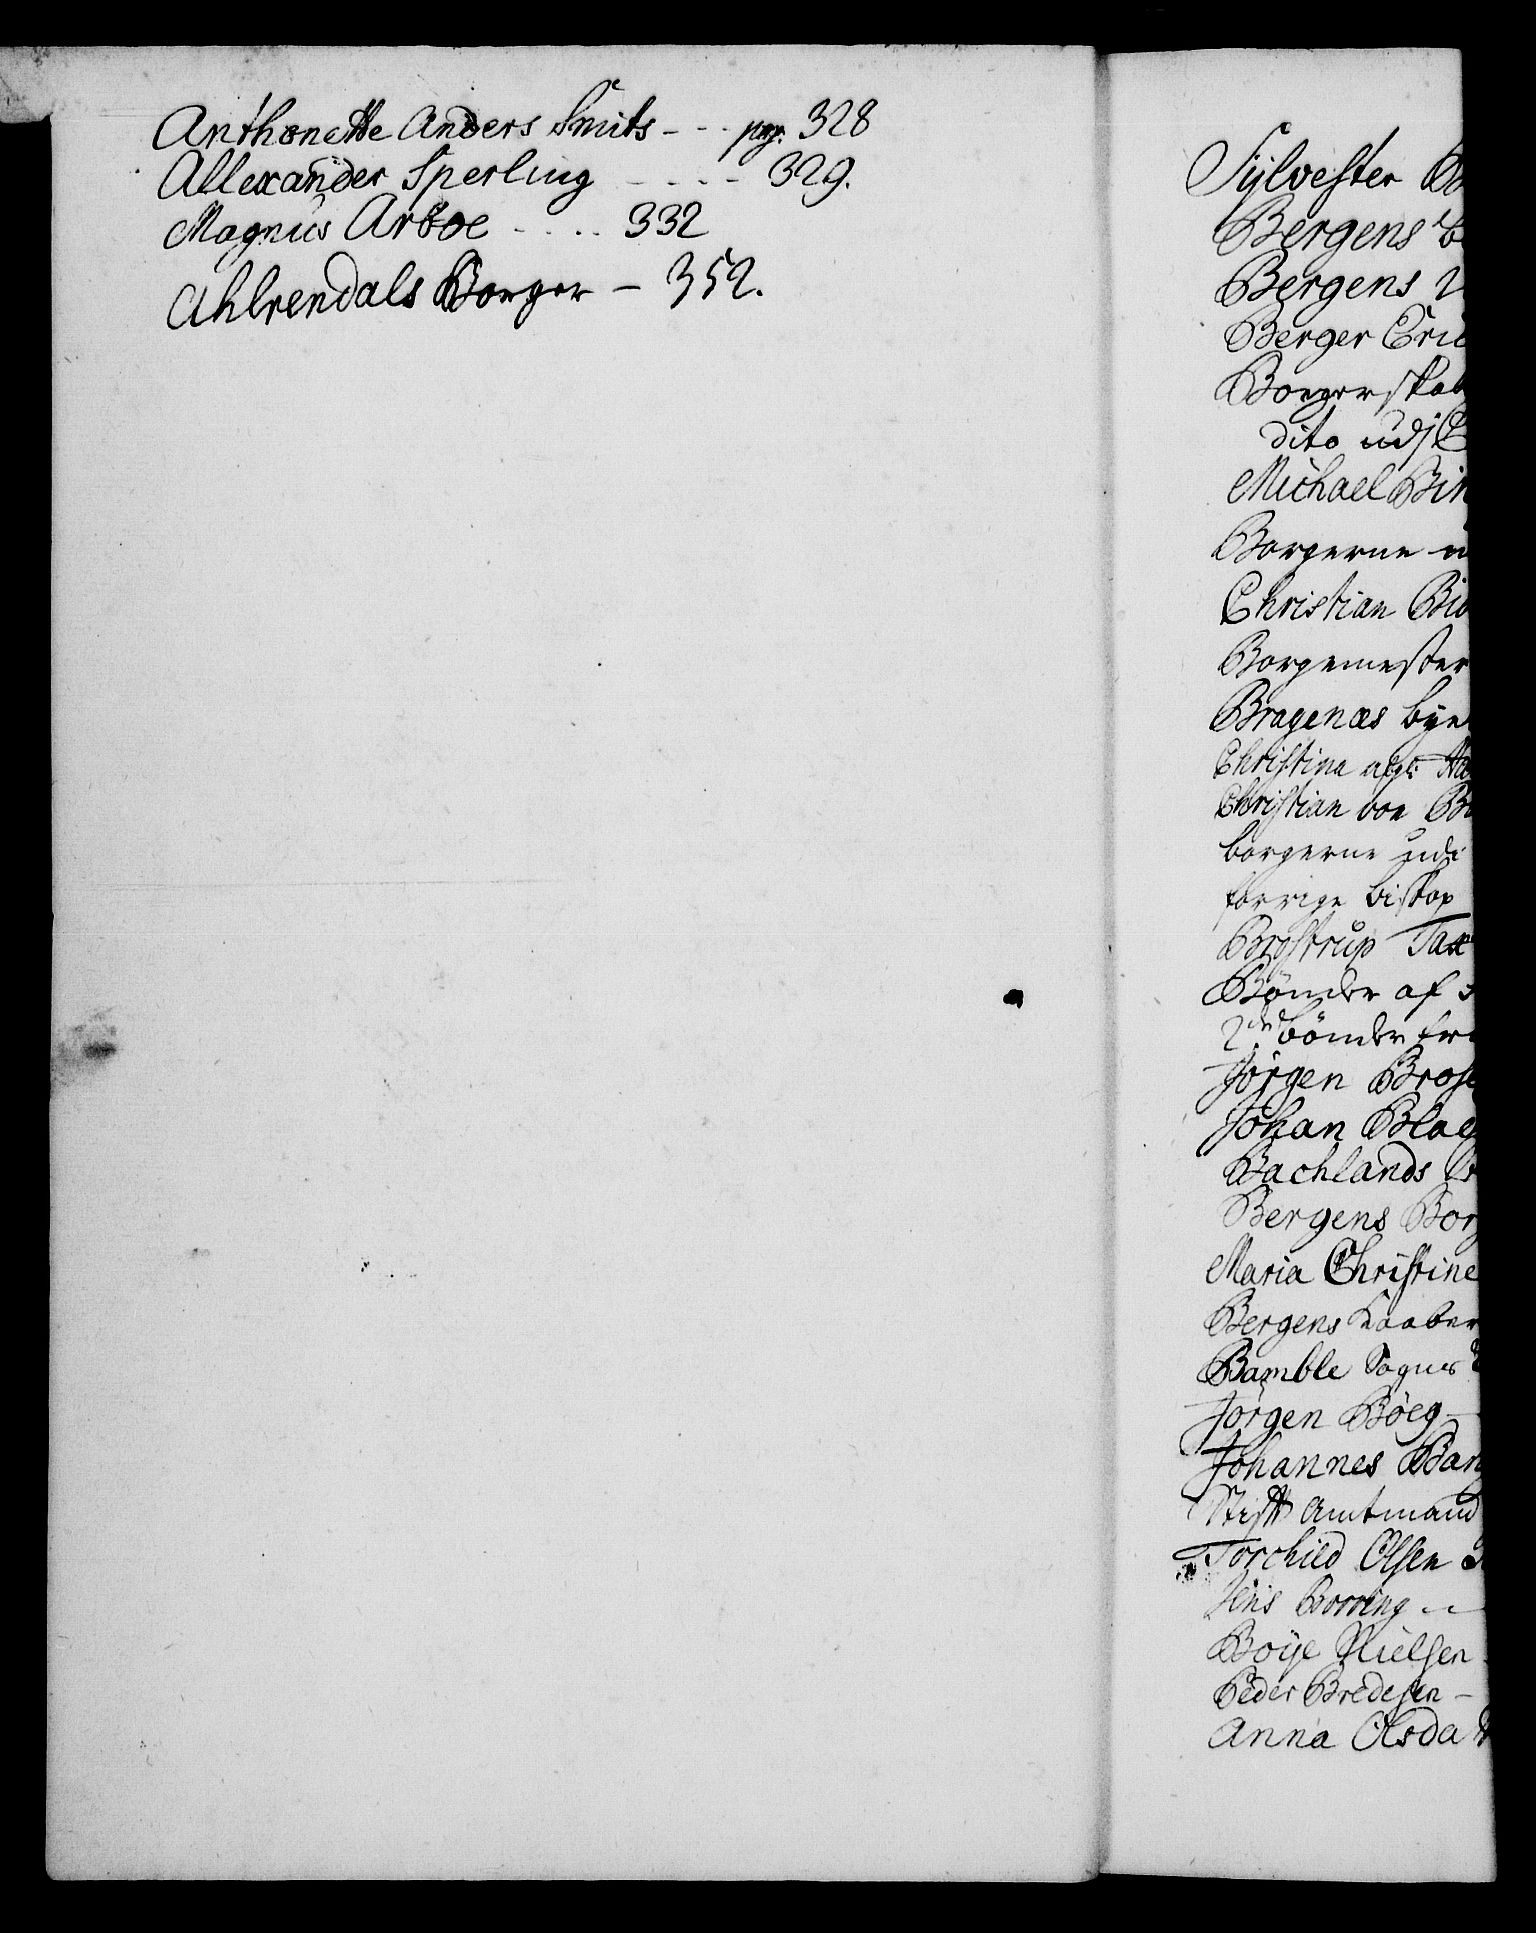 Anthonette Anders Smits - - - pag. 328
Allexander Sperling - - - - 329.
Magnus Arboe - - - - 332
Ahlrendals Borger - 352.
Sÿlvester
Bergens
Bergens
Berger Eric
Borgerskab
dito udj
Michael Bin
Borgerne
Christian Bio
Borgemester
Bragenæs bÿe
Christina
Christian von
borgerne udi
forrige biskop
Brostrup
Bønder af
2de bønder fr
Jørgen Brose
Johan Blae
Bachlands
Bergens Borg
Maria Christine
Bergens Kaaber
Bamble Sogns
Jørgen Bøeg -
Johannes Bang
Stift Amtmand
Torchild Olsen
Jens Borring -
Boÿe Nielsen
Peder Bredesen -
Anna Olsdatt